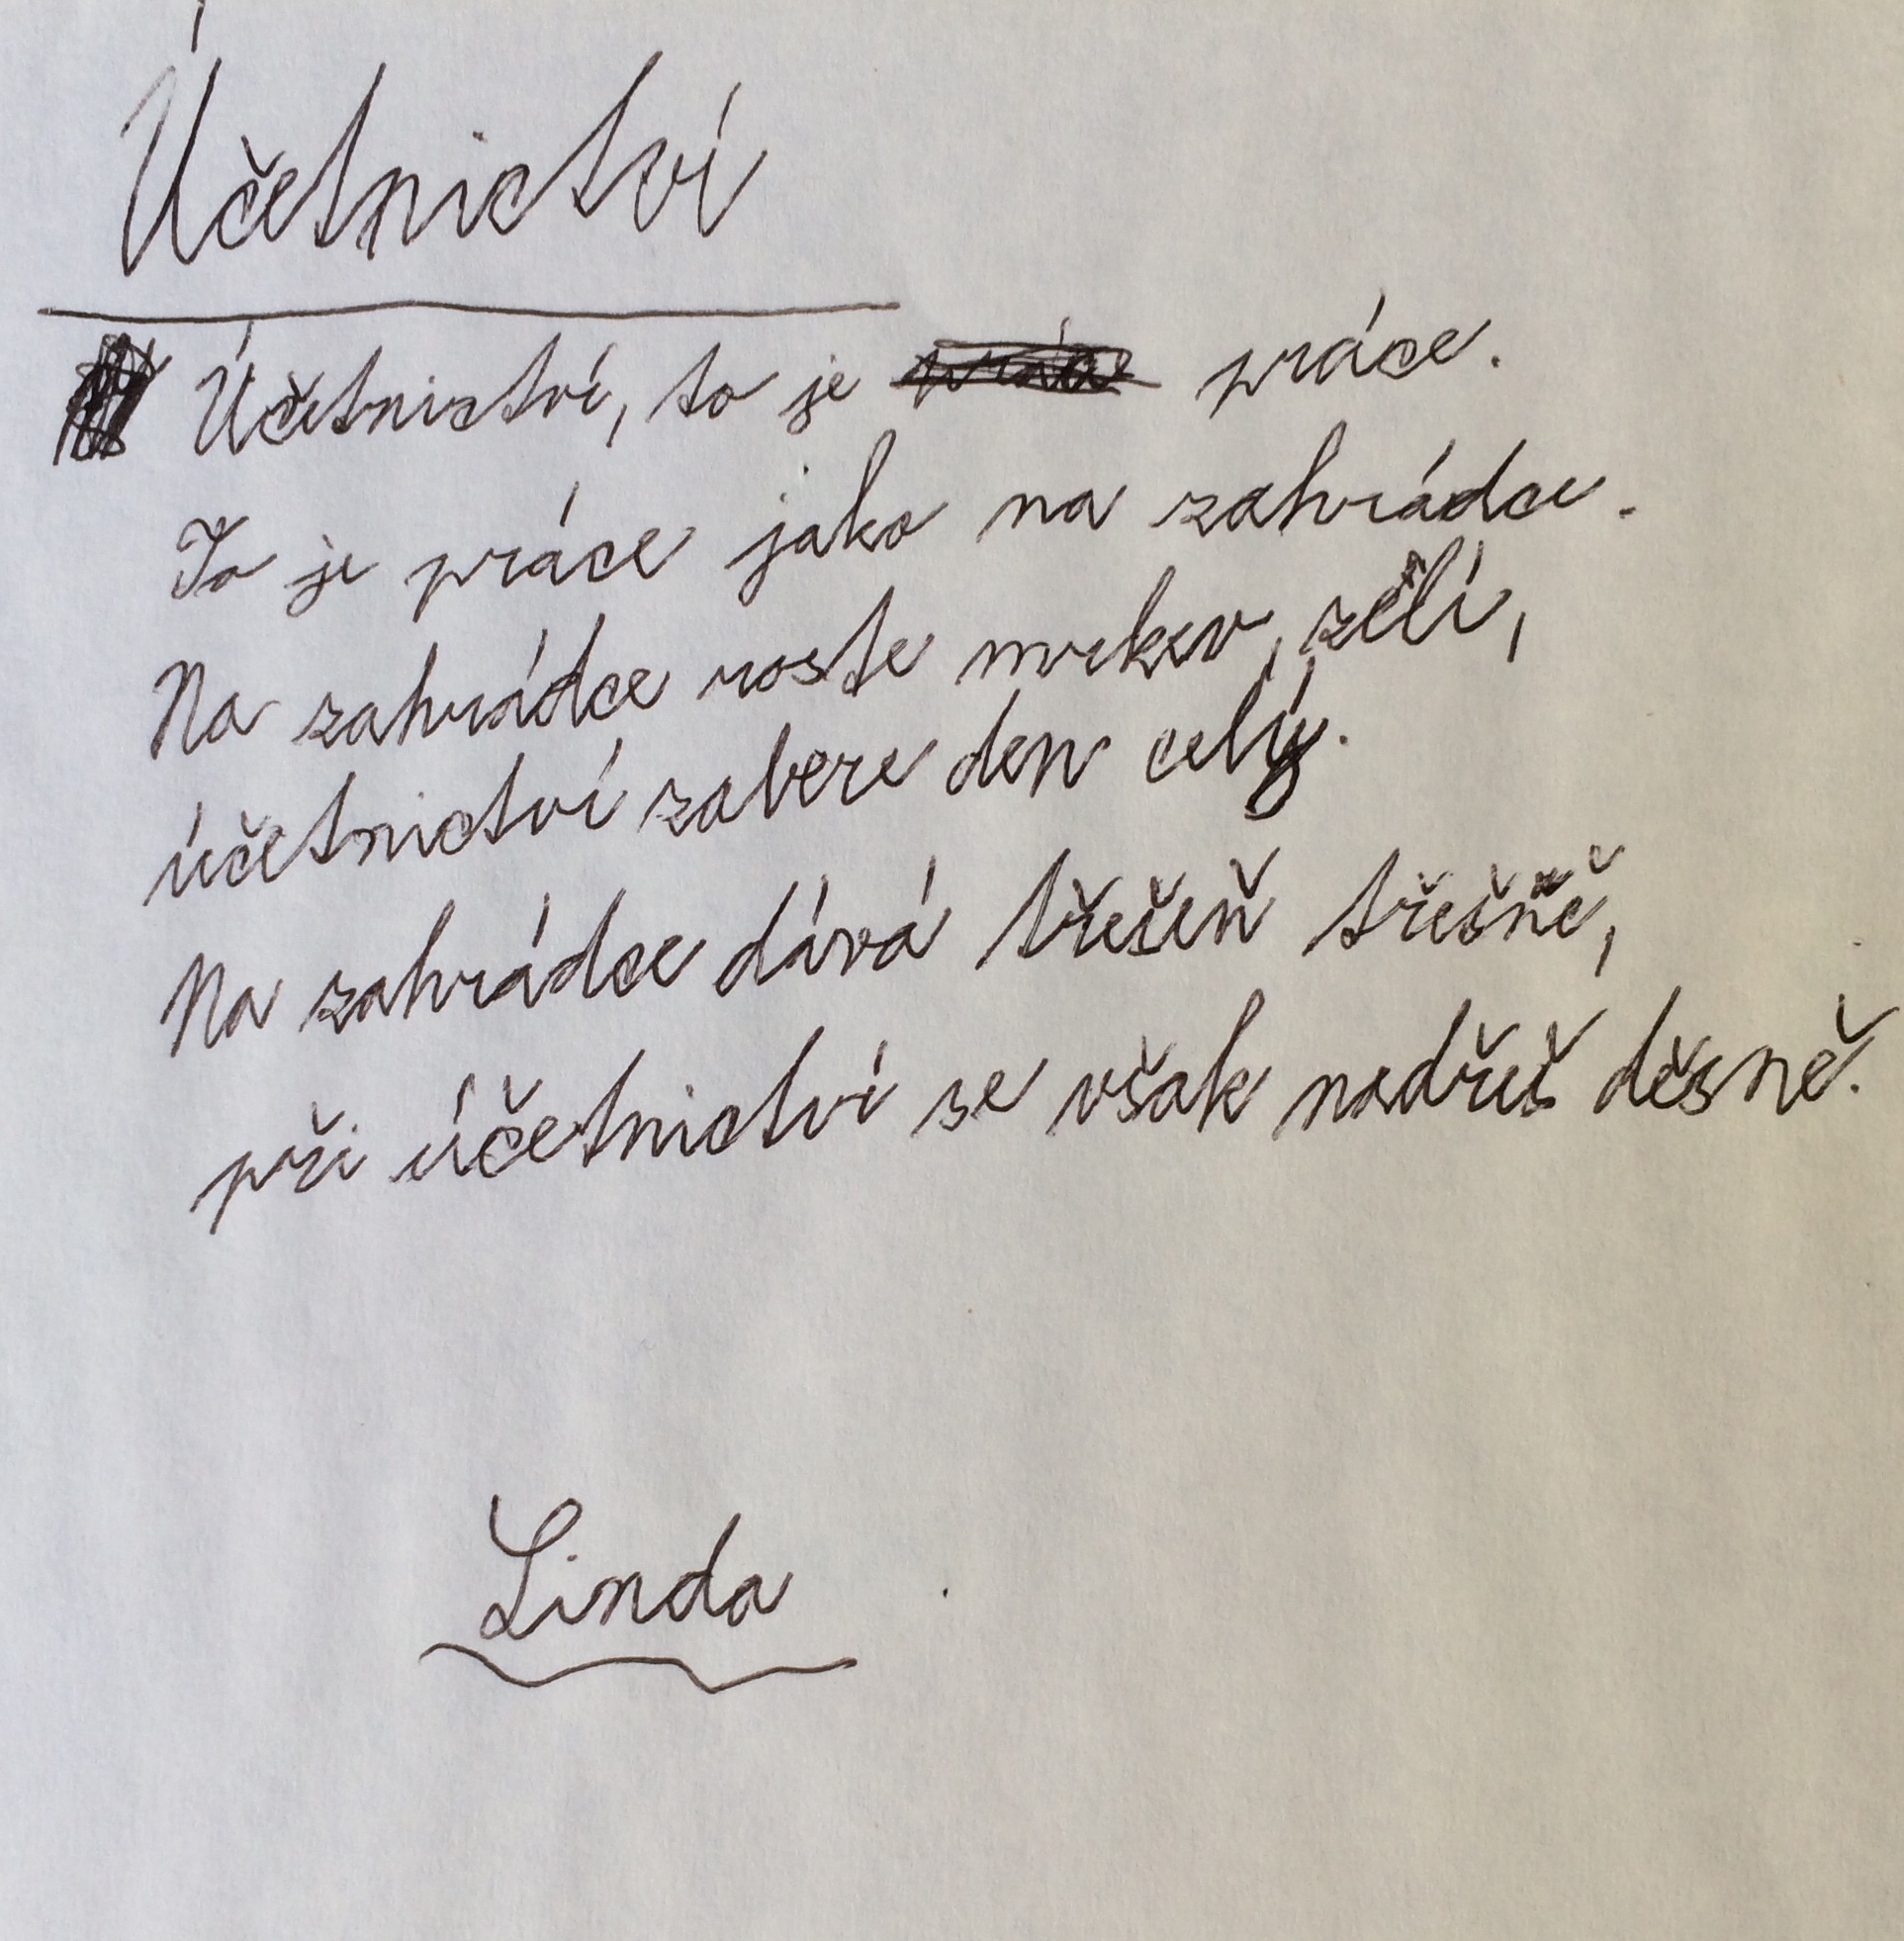 Účetnictví
Účetnictví, to je práce.
To je práce jako na zahrádce.
Na zahrádce roste mrkev, zelí,
účetnictví zabere den celý.
Na zahrádce dává třešeň třešně,
při účetnictví se však nadřeš děsně.
Linda